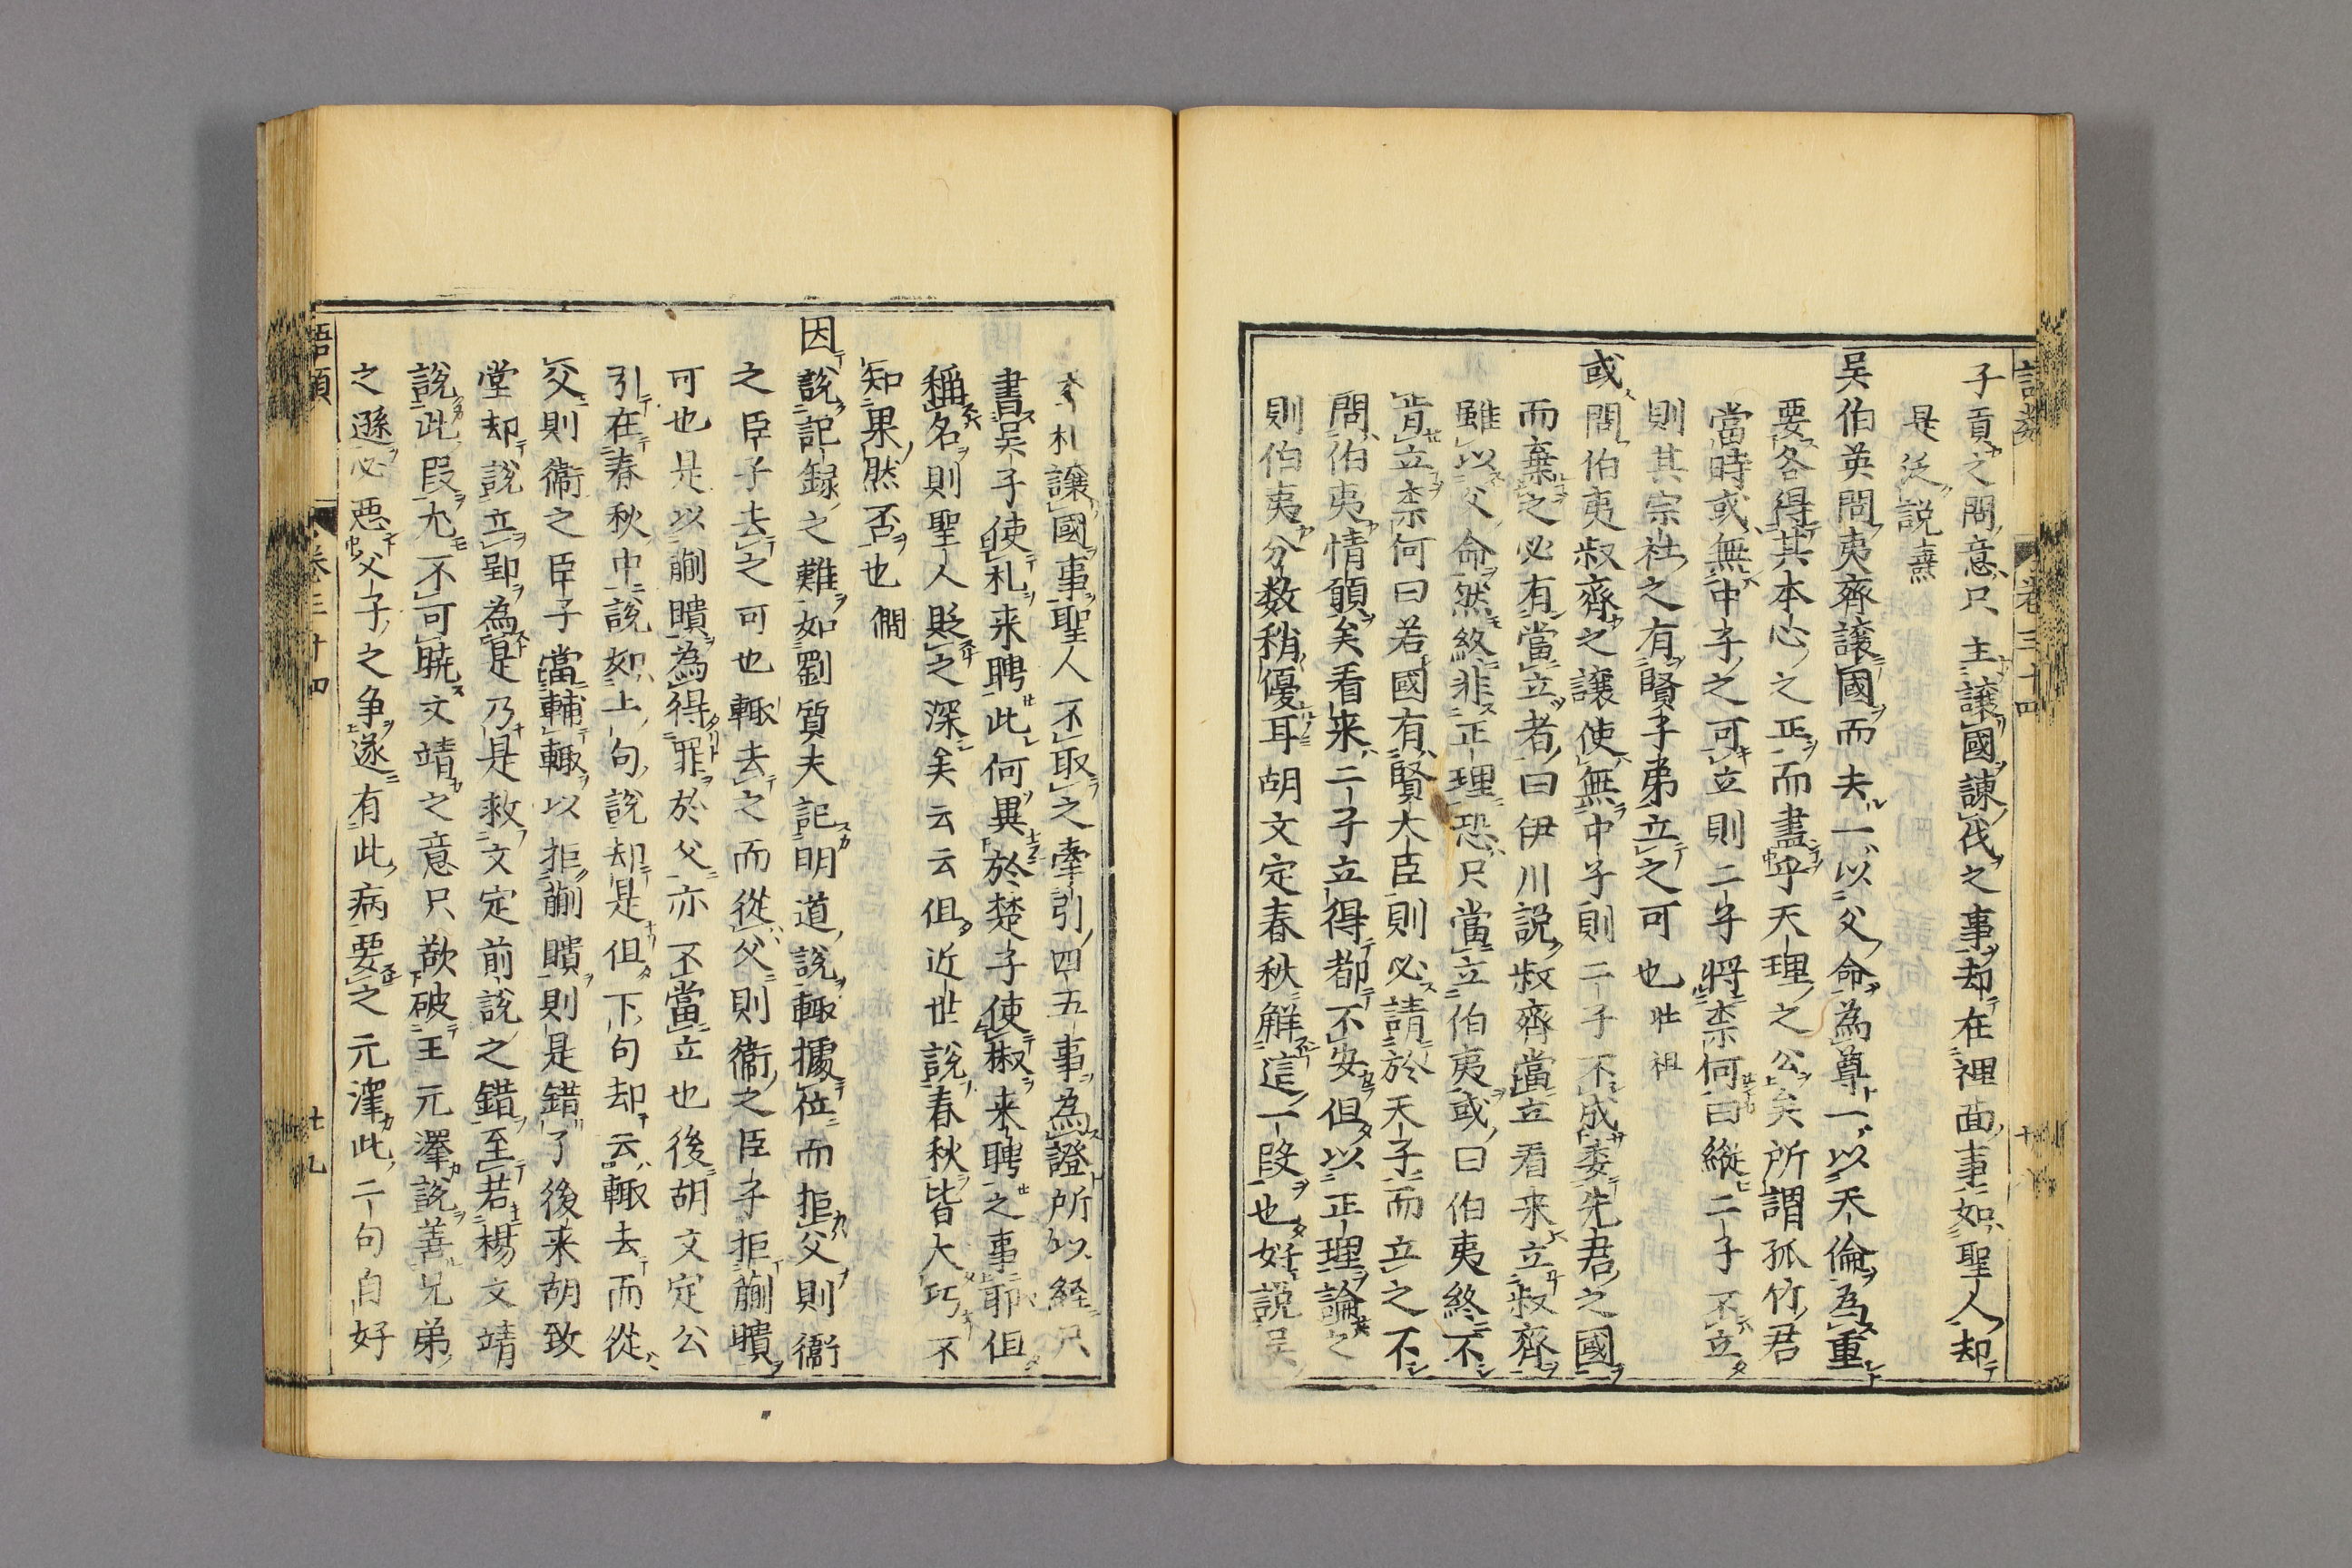 子貢之問意只主讓國諫伐之事却在裡面事如聖人却
是泛説燾
吴伯英問夷齊讓國而去一以父命為尊一以天倫為重
要各得其本心之正而盡乎天理之公矣所謂孤竹君
當時或無中子之可立則二子將柰何曰縱二子不立
則其宗社之有賢子弟立之可也壯祖
或問伯夷叔齊之讓使無中子則二子不成委先君之國
而棄之必有當立者曰伊川説叔齊當立看来立叔齊
雖以父命然終非正理恐只當立伯夷或曰伯夷終不
肯立柰何曰若國有賢大臣則必請於天子而立之不
問伯夷情願矣看来二子立得都不安但以正理論之
則伯夷分数稍優耳胡文定春秋解這一段也好説吴
季札讓國事聖人不取之牽引四五事為證所以経只
書吴子使札来聘此何異於楚子使椒来聘之事耶但
稱名則聖人貶之深矣云云但近世説春秋皆大巧不
知果然否也僩
因説記録之難如劉質夫記明道説輙據位而拒父則衞
之臣子去之可也輙去之而從父則衞之臣子拒蒯聵
可也是以蒯聵為得罪於父亦不當立也後胡文定公
引在春秋中説如上句説却是但下句却云輙去而從
父則衞之臣子當輔輙以拒蒯聵則是錯了後来胡致
堂却説立郢為是乃是救文定前説之錯至若楊文靖
説此段尤不可曉文靖之意只欲破王元澤説善兄弟
之遜必悪父子之争遂有此病要之元澤此二句自好
語類
卷三十四
十九